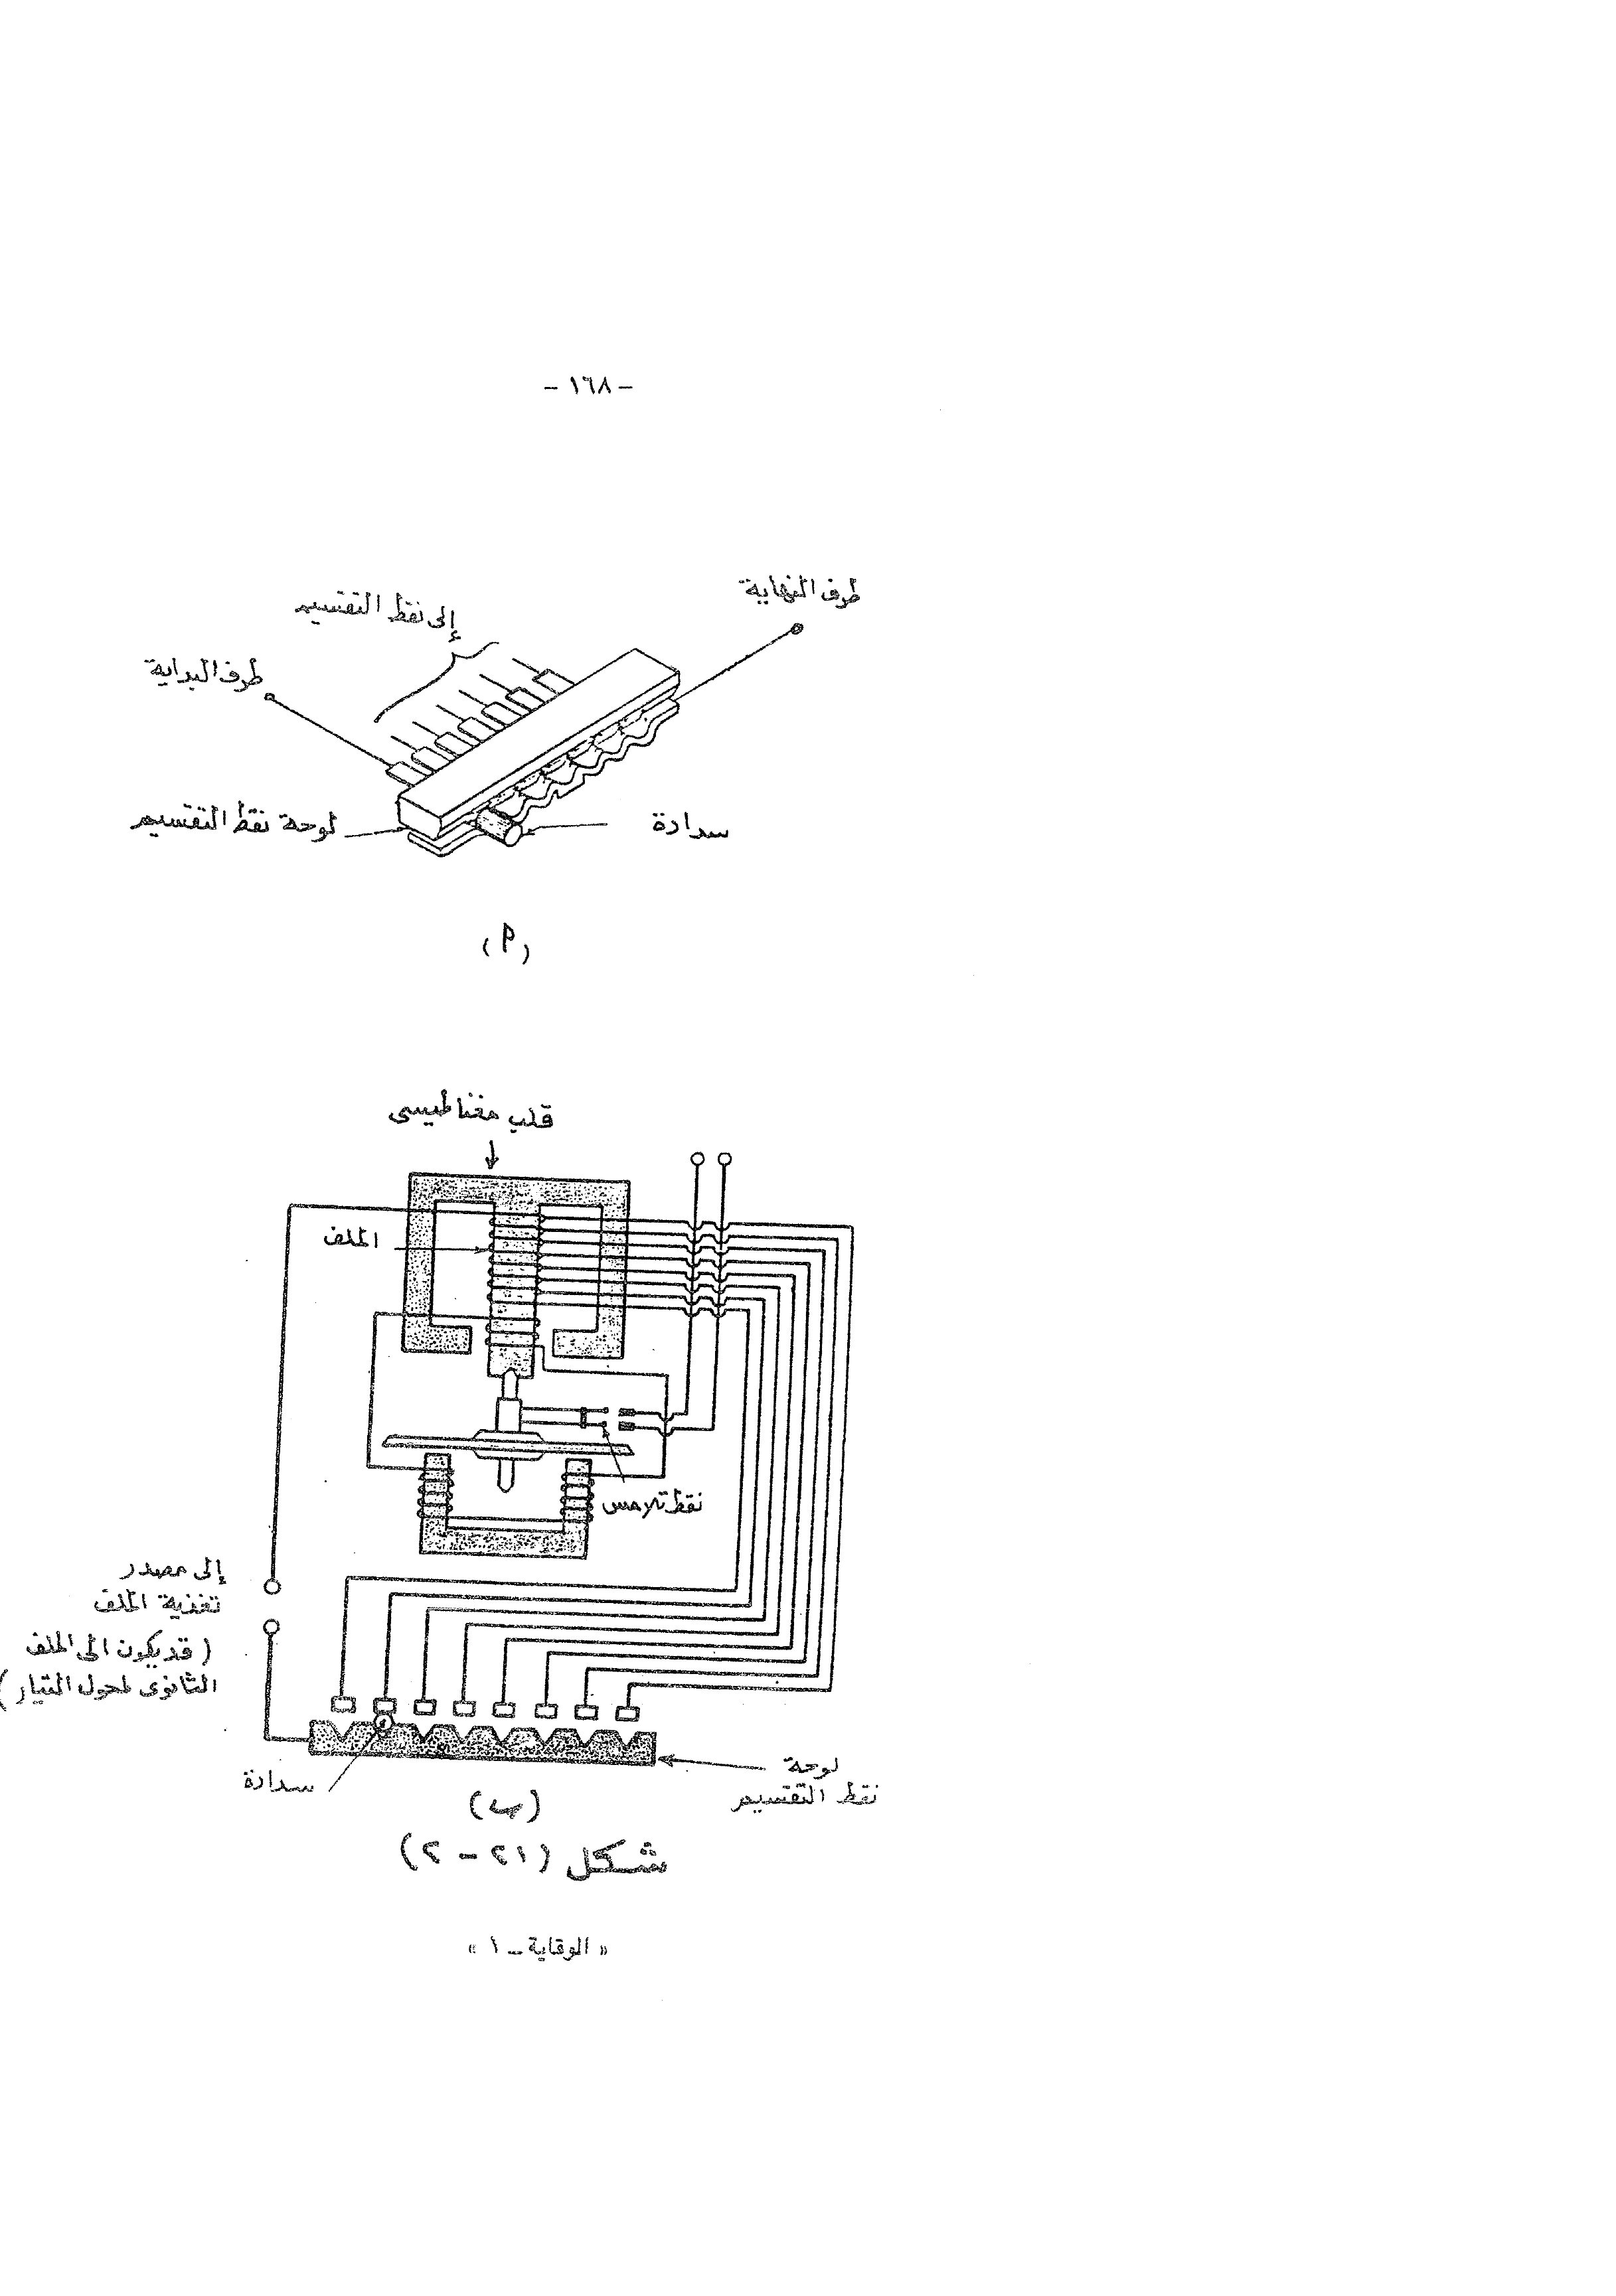 - ١٦٨ -
طرف النهاية
إلى نقط التقسيم
طرف البداية
لوحة نقط التقسيم
سدادة
(أ)
قلب مغناطيسى
الملف
نقط تلامس
إلى مصدر
تغذية الملف
( قد يكون الى الملف
الثانوى لمحول التيار )
لوحة
نقط التقسيم
سدادة
(ب)
شكل (٢١ - ٢)
« الوقاية - ١ »